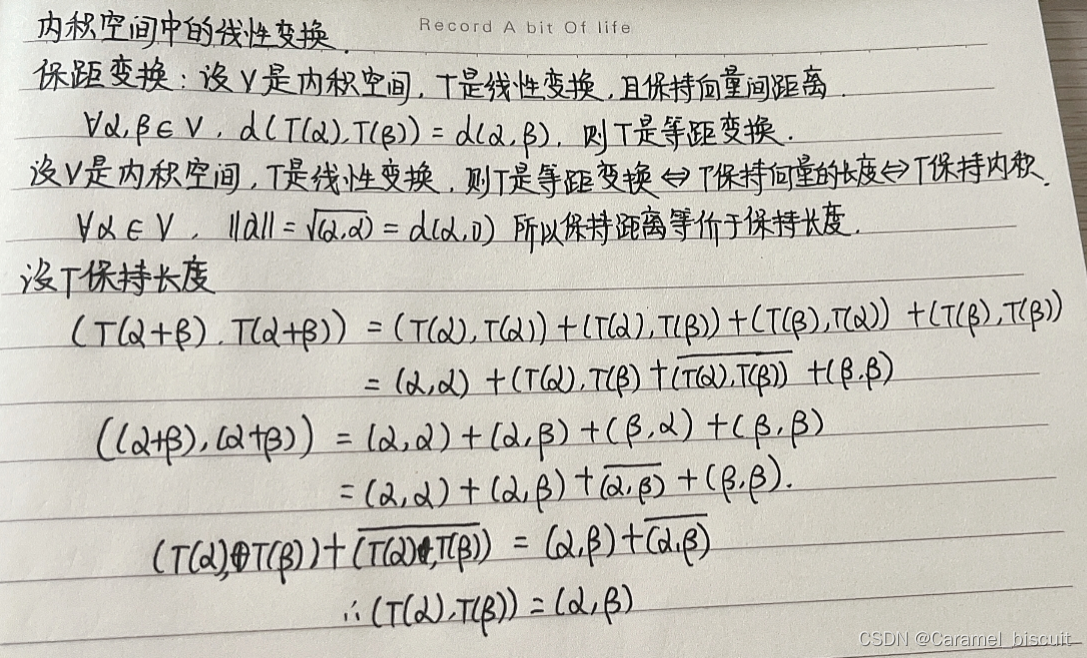 Record A bit Of life
内积空间中的线性变换.
保距变换:设V是内积空间,T是线性变换,且保持向量间距离.
∀α,β∈V, d(T(α),T(β)) = d(α,β), 则T是等距变换.
设V是内积空间,T是线性变换,则T是等距变换⇔T保持向量的长度⇔T保持内积.
∀α∈V, ||α|| = √(α,α) = d(α,0) 所以保持距离等价于保持长度.
设T保持长度
(T(α+β), T(α+β)) = (T(α),T(α)) + (T(α),T(β)) + (T(β),T(α)) + (T(β),T(β))
= (α,α) + (T(α),T(β) + \overline{(T(α),T(β))} + (β,β)
((α+β),(α+β)) = (α,α) + (α,β) + (β,α) + (β,β)
= (α,α) + (α,β) + \overline{(α,β)} + (β,β).
(T(α),T(β)) + \overline{(T(α),T(β))} = (α,β) + \overline{(α,β)}
∴(T(α),T(β)) = (α,β)
CSDN @Caramel_biscuit